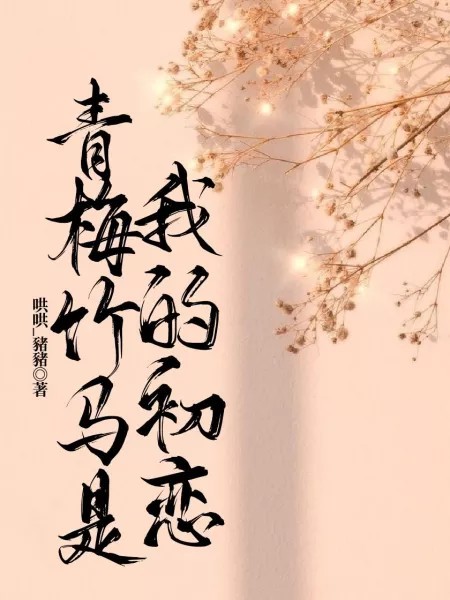 青梅竹马是
我的初恋
哄哄_豬豬◎著